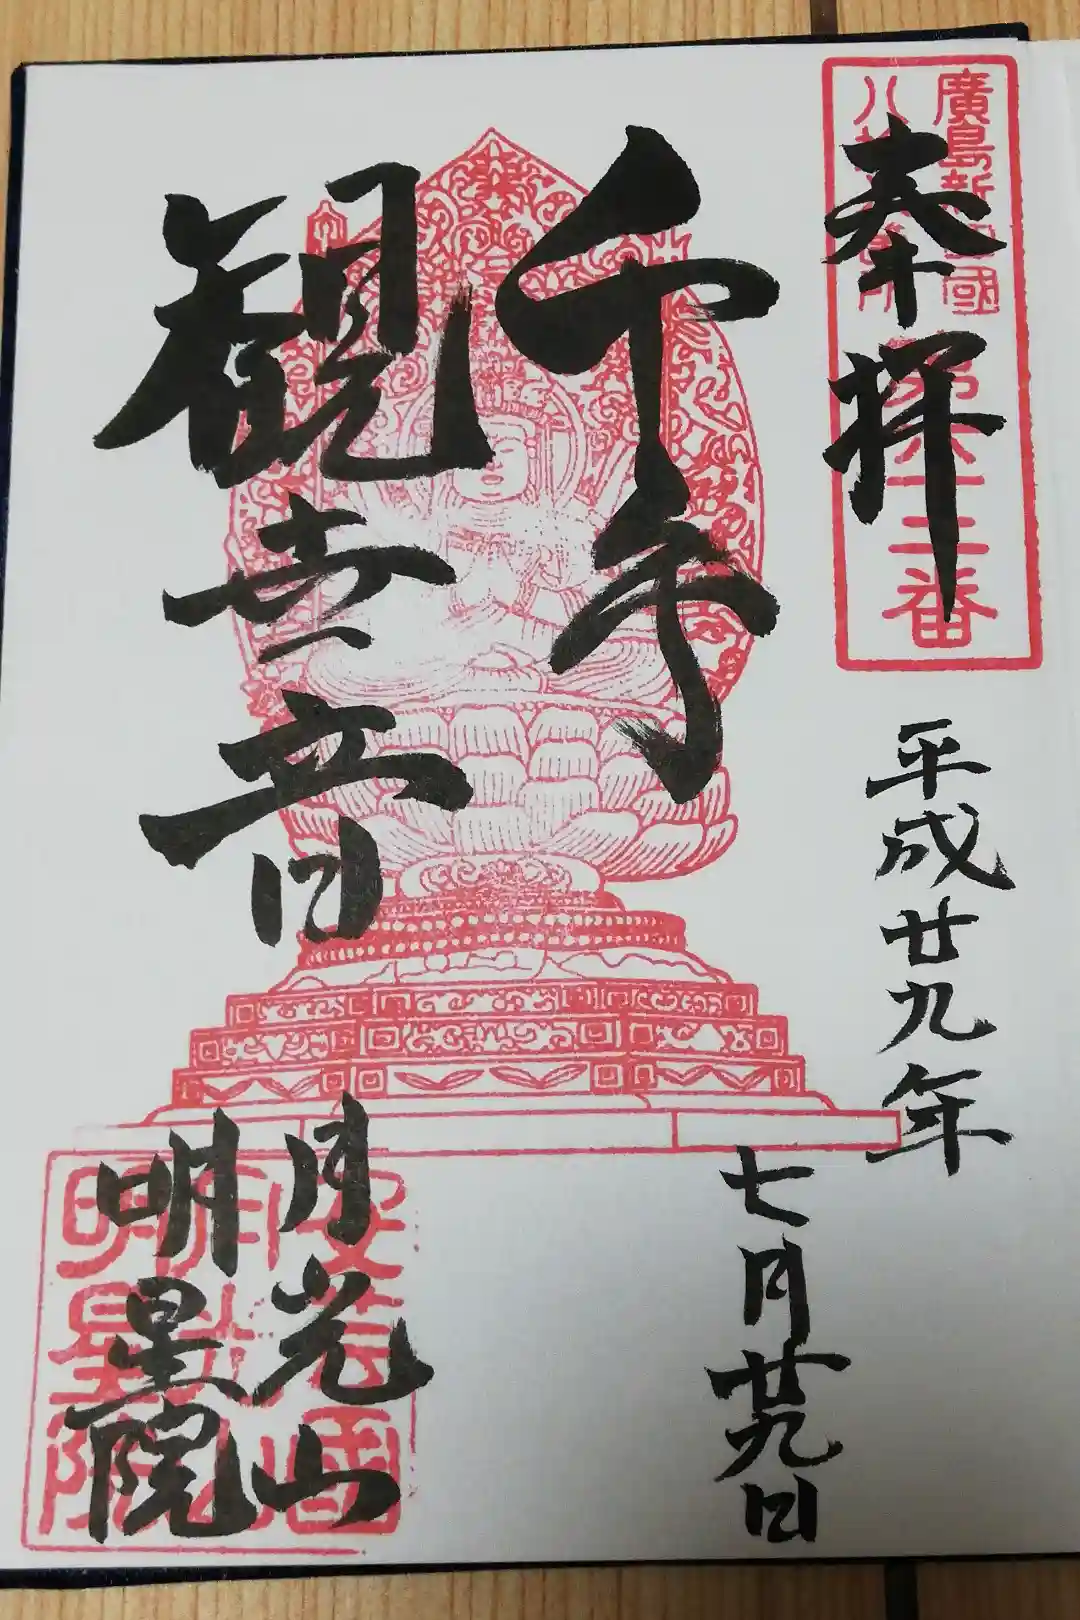 奉拝
平成廿九年
七月廿九日
千手
観世音
月光山
明星院
廣島新四國
八十八ヶ所
第十二番
安芸國
明星院